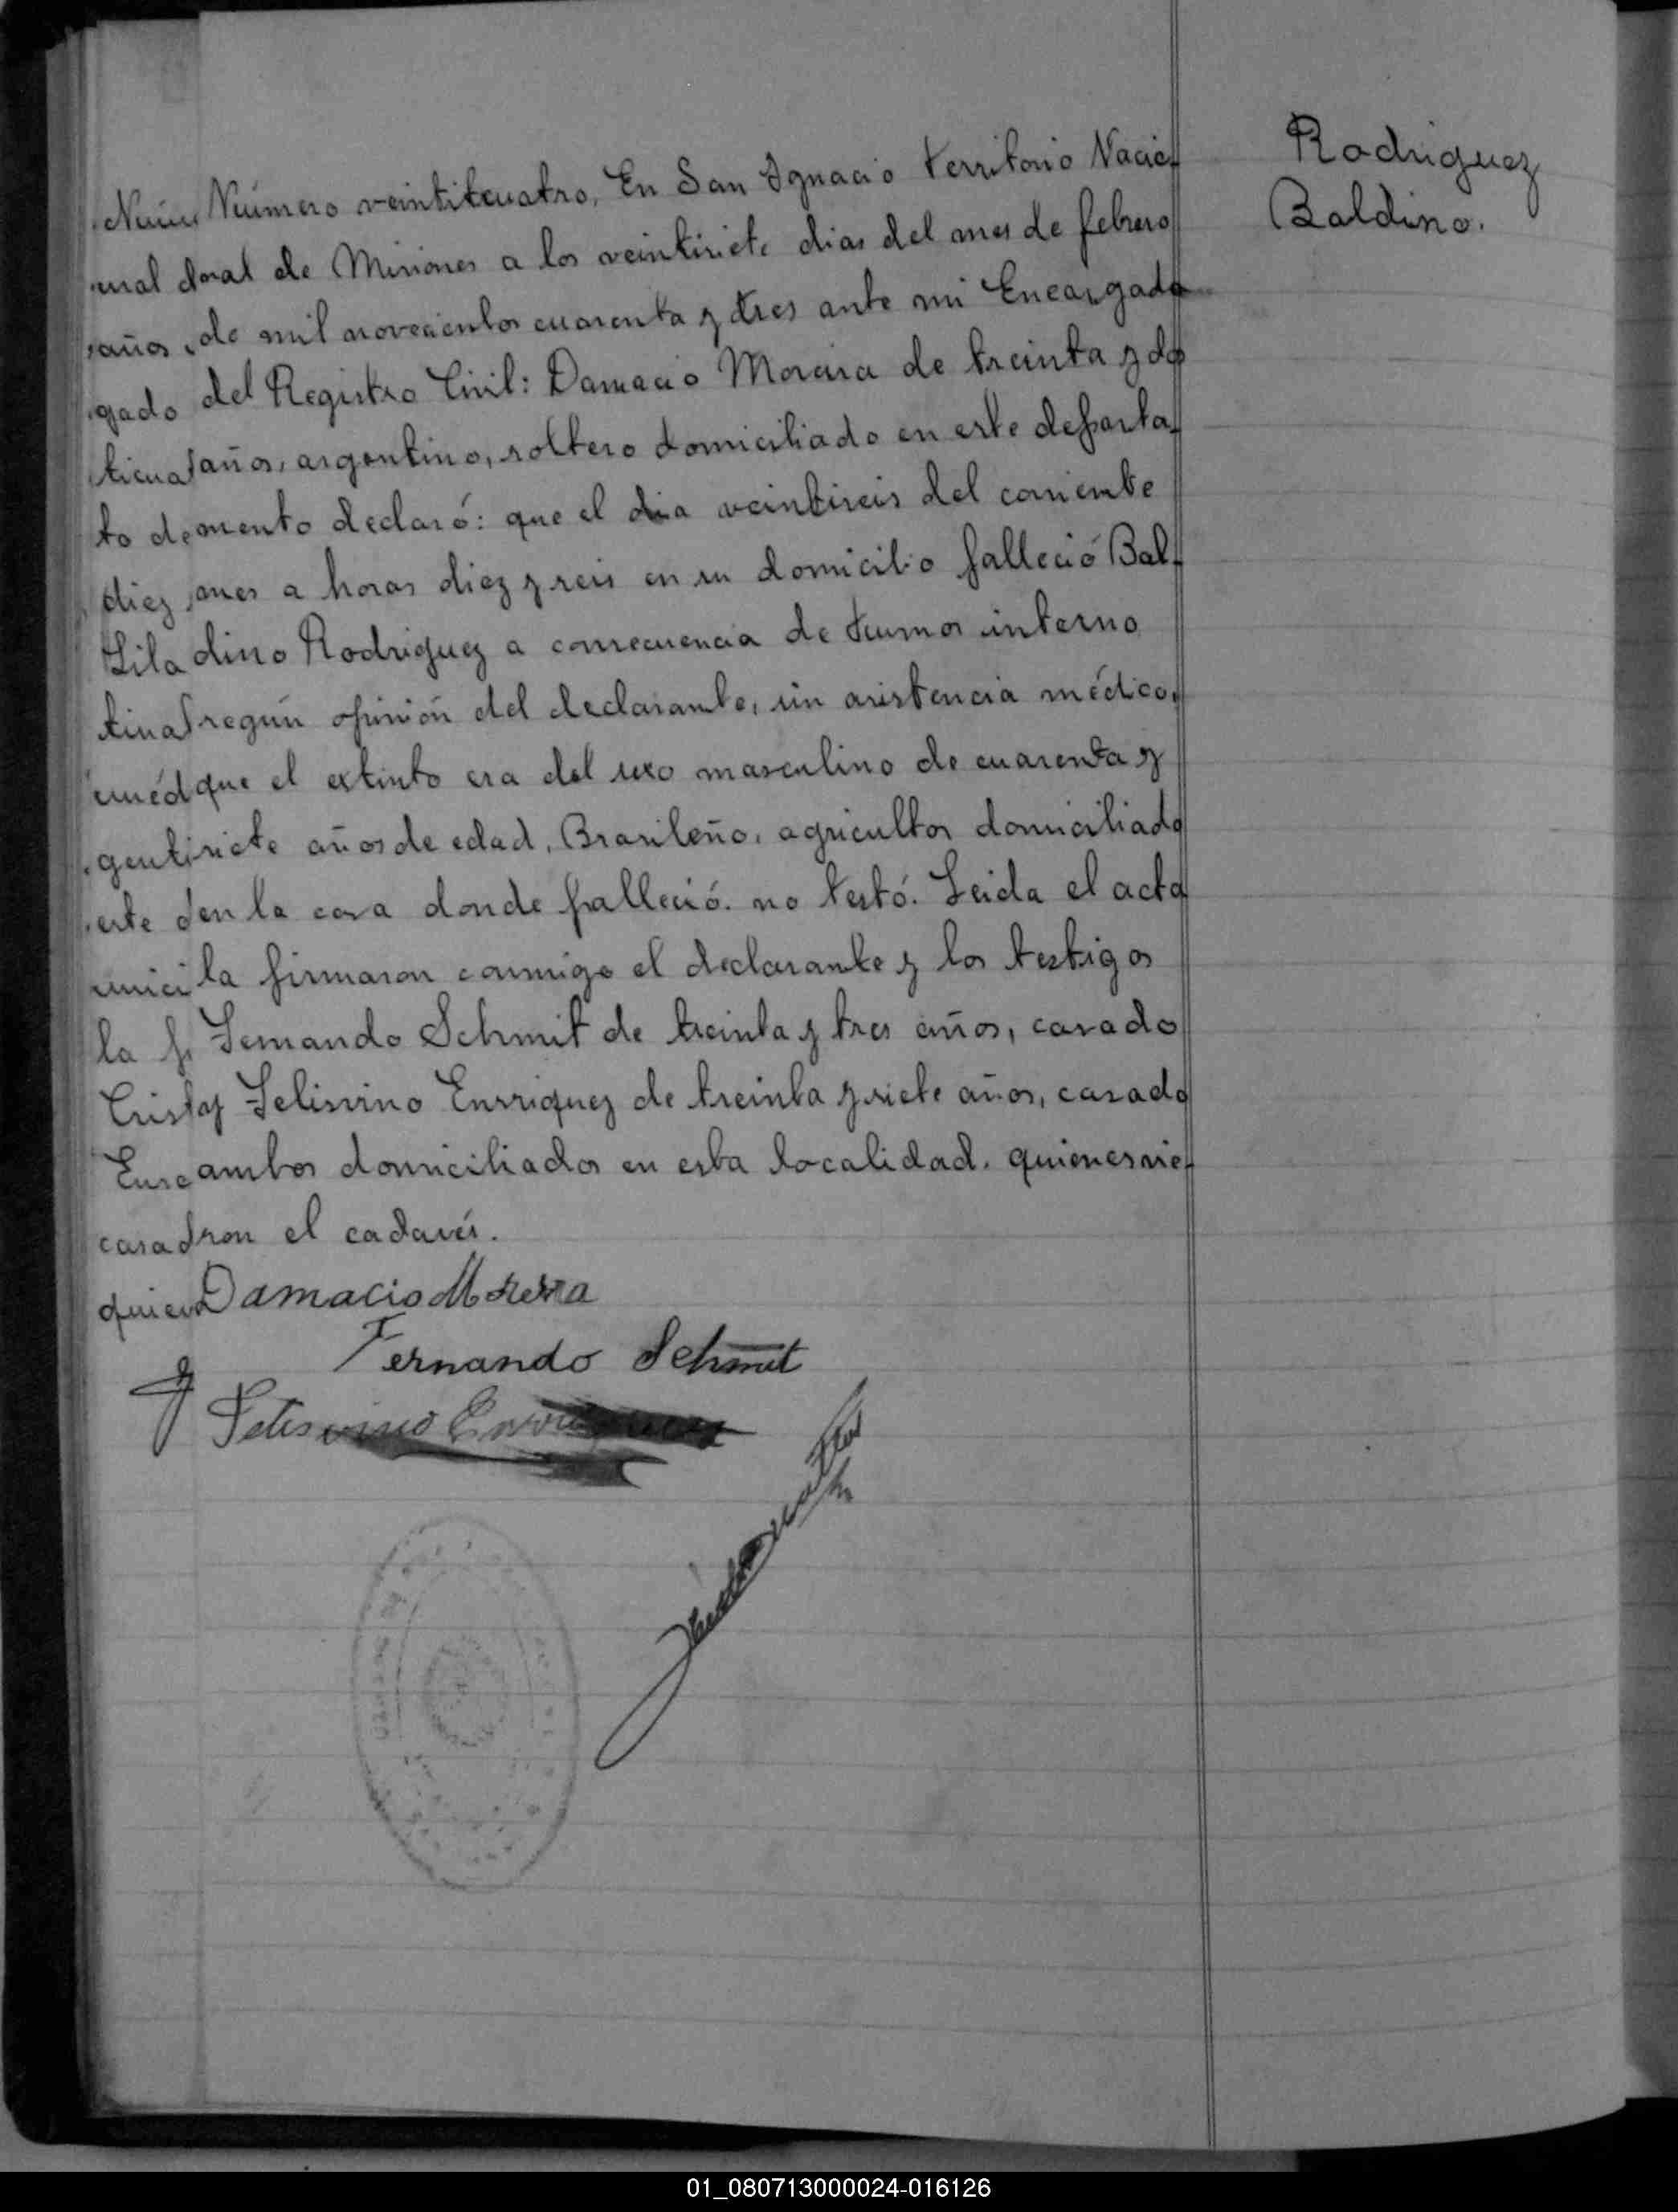 Rodriguez
Baldino.
Número veintitcuatro, En San Ignacio territorio Nacio-
nal de Misiones a los veintisiete dias del mes de febrero
de mil novecientos cuarenta y tres ante mi Encargado
del Registro Civil: Damacio Moreira de treinta y dos
años, argentino, soltero domiciliado en este departa-
mento declaró: que el dia veintiseis del corriente
mes a horas diez y seis en su domicilio falleció Bal-
dino Rodriguez a consecuencia de tumor interno
según opinión del declarante, sin asistencia médica,
que el extinto era del sexo masculino de cuarenta y
siete años de edad, Brasileño, agricultor domiciliado
en la casa donde falleció. no testó. Leida el acta
la firmaron conmigo el declarante y los testigos
Fernando Schmit de treinta y tres años, casado
y Felisvino Enrriquez de treinta y siete años, casado
ambos domiciliados en esta localidad. quienes vie-
ron el cadavér.
Damacio Morera
Fernando Schmit
Felisvino Enrriquez
01_080713000024-016126